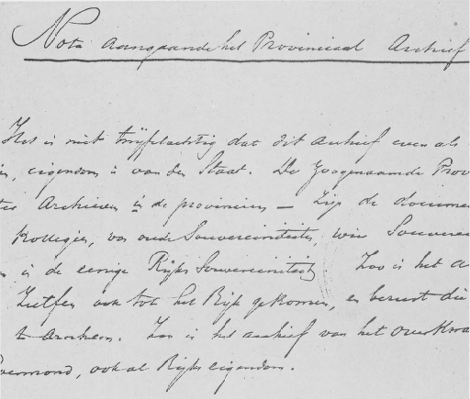 Nota aangaande het Provinciaal Archief
Het is niet twijfelachtig dat dit archief even als
eigendom is van den Staat. De Zoogenaamde Prov
Archieven in de provincien – Zijn de documen
Kollegien, van oude Souvereiniteiten, wier Souverei
is de eenige Rijks Souvereiniteit Zoo is het a
Zutfen ook tot het Rijk gekomen, en berust die
te Arnhem. Zoo is het archief van het overkwa
ook als Rijks eigendom.